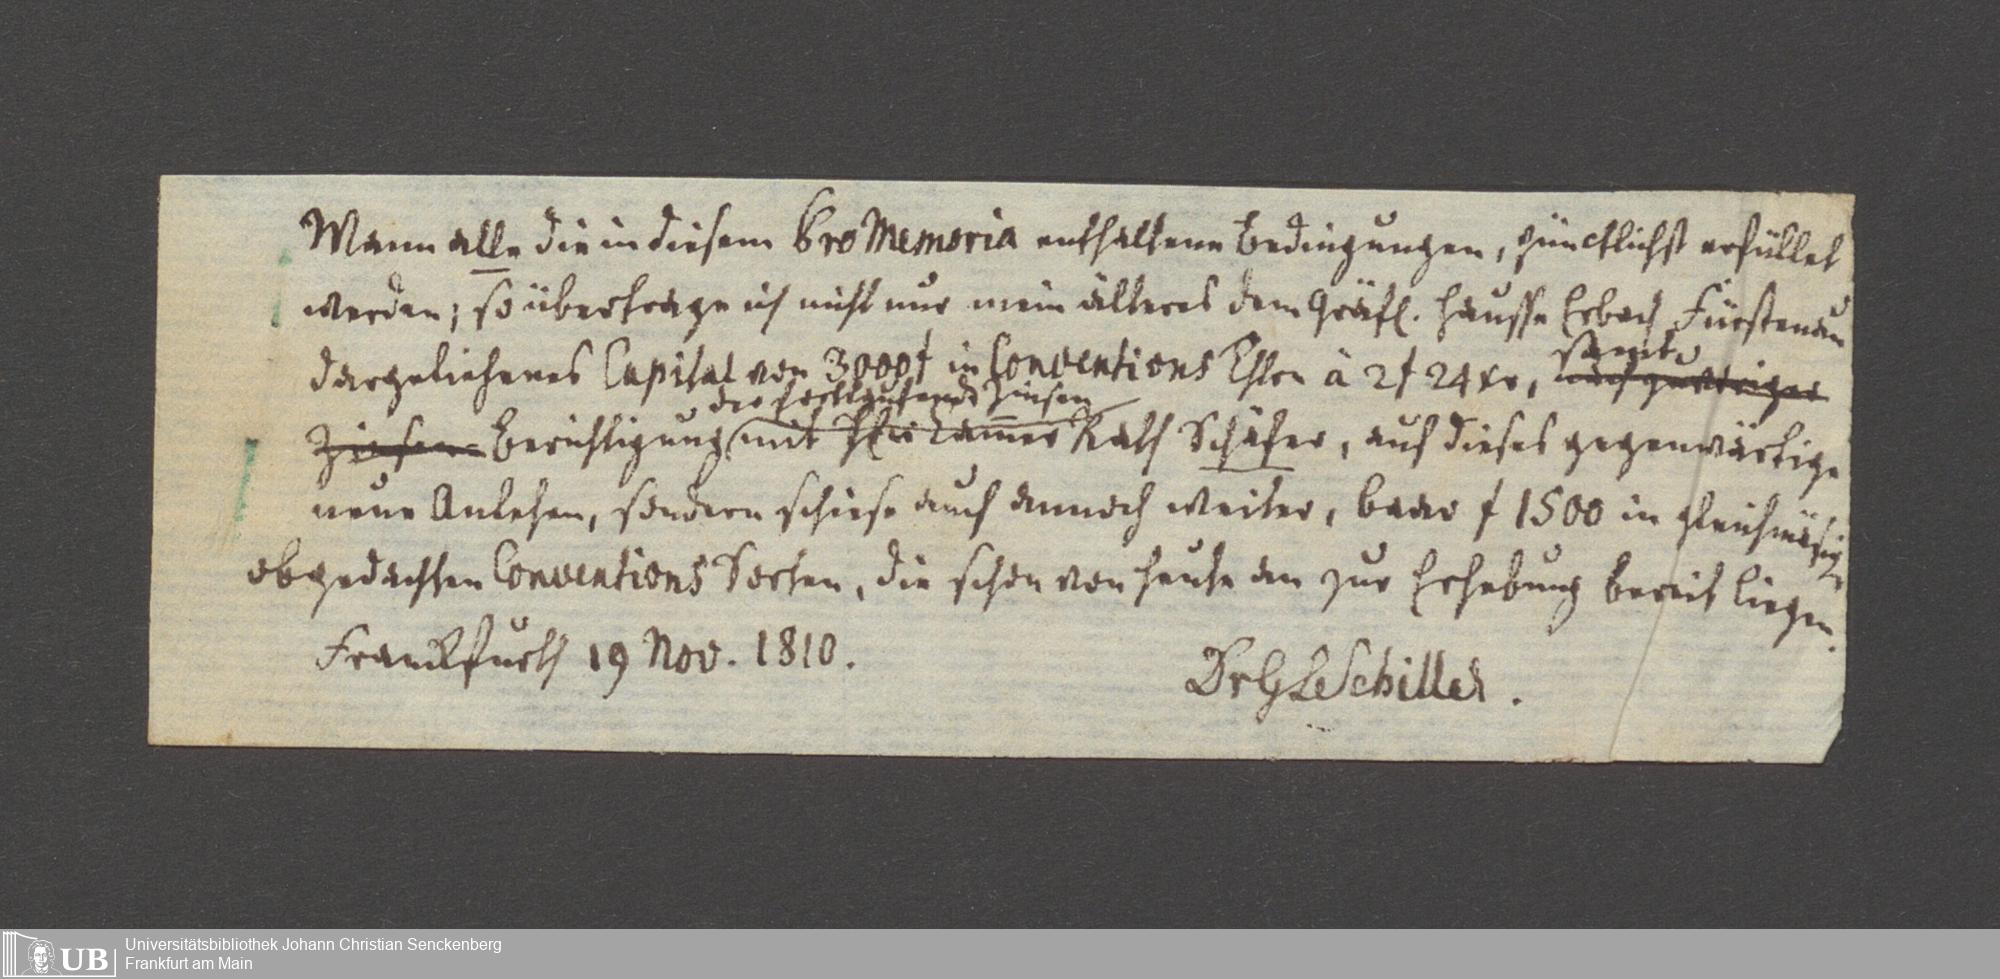 Wann alle die in diesem Pro Memoria enthaltene Bedingungen, pünctlichst erfüllet
werden; so übertrage ich nicht nur mein älteres dem Gräfl. Hausse Erbach Fürstenau
dargeliehenes Capital von 3000f in Conventions Thlrn à 2f 24 xr,
samt
der fortlaufende Zinsen
Zinsen Berichtigung mit Kammer Rath Schäfer, auf dieses gegenwärtige
neue Anlehen, sondern schiese auch annoch weiter, baar f 1500 in gleichmäsig
obgedachten Conventions Sorten, die schon von heute an zur Erhebung bereit liegen.
Franckfurth 19 Nov. 1810.
Dr G Schiller.
UB
Universitätsbibliothek Johann Christian Senckenberg
Frankfurt am Main